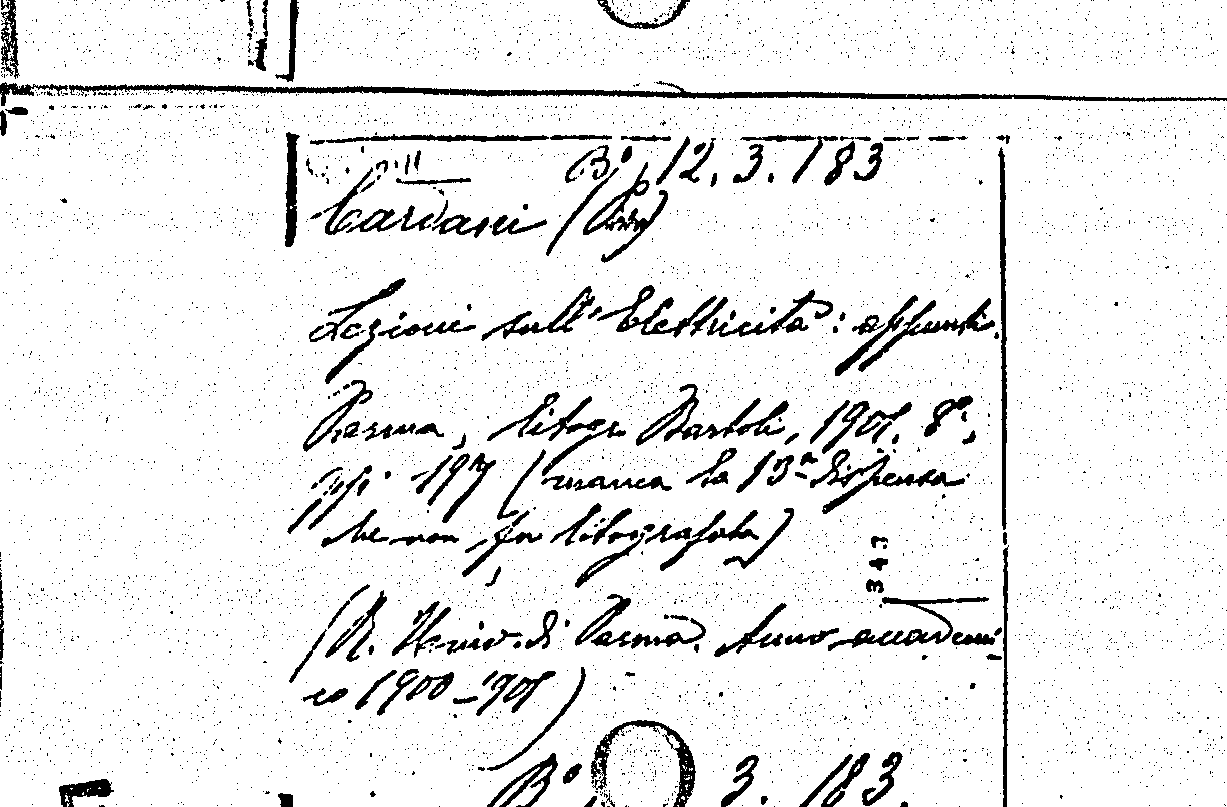 Bº 12. 3. 183
Cardani (
Lezioni sull'Elettricità: appunti.
Parma, litogr. Bartoli, 1901. 8º,
pp. 197 (manca la 13ª dispensa
che non fu litografata)
343
(R. Univ. di Parma. Anno accademi-
co 1900-901)
Bº 3. 183.